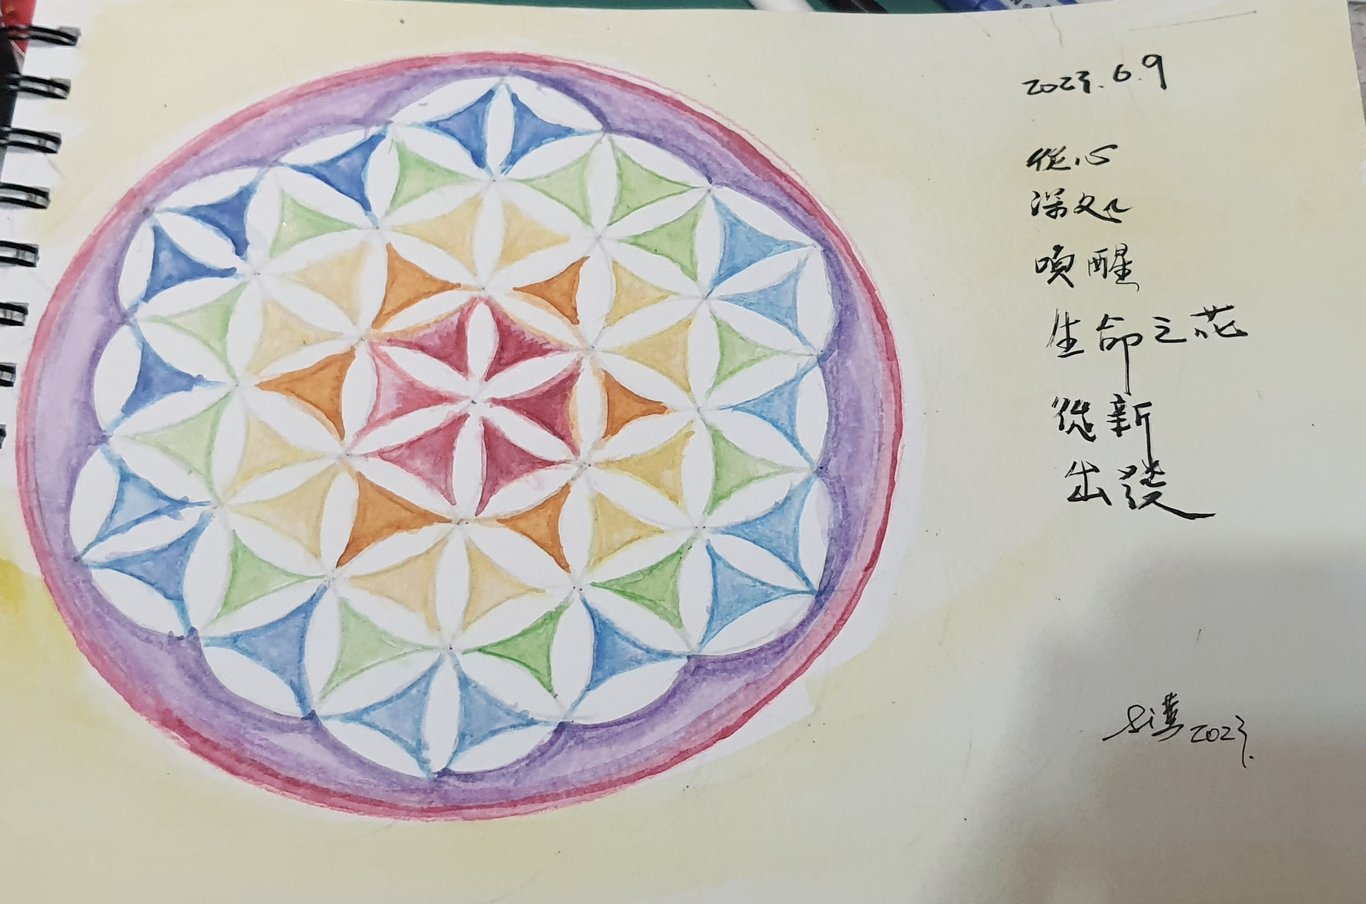 2023.6.9
從心
深处
唤醒
生命之花
從新
出發
2023.